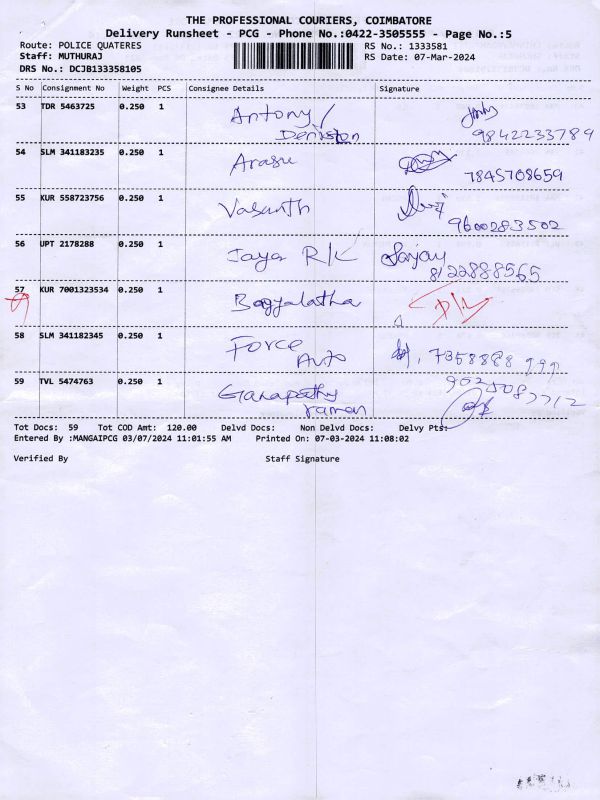 THE PROFESSIONAL COURIERS, COIMBATORE
Delivery Runsheet - PCG - Phone No.:0422-3505555 - Page No.:5
Route: POLICE QUATERES RS No.: 1333581
Staff: MUTHURAJ RS Date: 07-Mar-2024
DRS No.: DCJB133358105
S No Consignment No Weight PCS Consignee Details Signature
53 TDR 5463725 0.250 1 Antony/
Deniston 9842233789
54 SLM 341183235 0.250 1 Arasu
7845708659
55 KUR 558723756 0.250 1 Vasanth
9600283502
56 UPT 2178288 0.250 1 Jaya R/K Sanjay
8122888565
57 KUR 7001323534 0.250 1 Bagyalatha
58 SLM 341182345 0.250 1 Force
Auto 7358888999
59 TVL 5474763 0.250 1 Ganapathy
raman
Tot Docs: 59 Tot COD Amt: 120.00 Delvd Docs: Non Delvd Docs: Delvy Pts:
Entered By :MANGAIPCG 03/07/2024 11:01:55 AM Printed On: 07-03-2024 11:08:02
Verified By Staff Signature